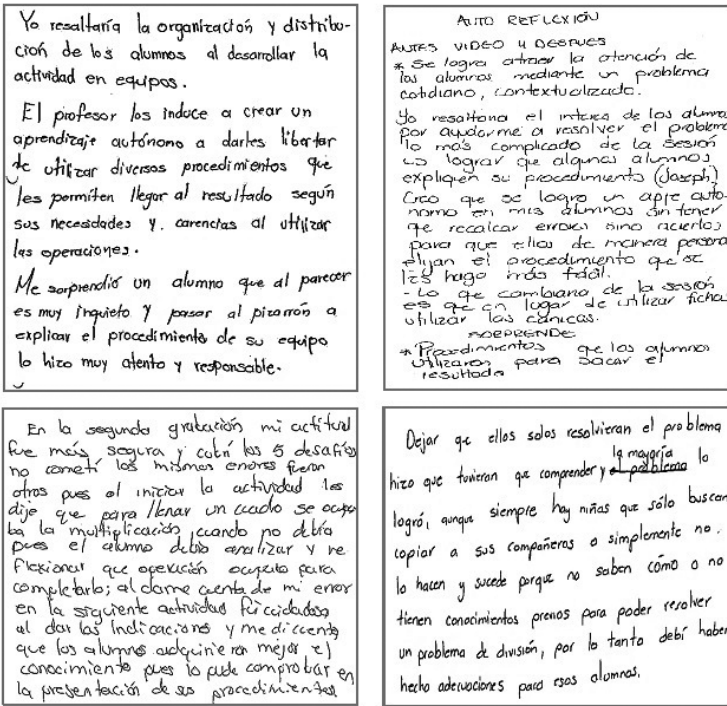 Yo resaltaría la organización y distribu-
ción de los alumnos al desarrollar la
actividad en equipos.
El profesor los induce a crear un
aprendizaje autónomo a darles libertar
de utilizar diversos procedimientos que
les permiten llegar al resultado según
sus necesidades y carencias al utilizar
las operaciones.
Me sorprendió un alumno que al parecer
es muy inquieto y pasar al pizarrón a
explicar el procedimiento de su equipo
lo hizo muy atento y responsable.
AUTO REFLEXIÓN
ANTES VIDEO Y DESPUES
* Se logra atraer la atención de
los alumnos mediante un problema
cotidiano, contextualizado.
Yo resaltaria el interes de los alumno
por ayudarme a resolver el problema
lo más complicado de la sesión
es lograr que algunos alumnos
expliquen su procedimiento (Joseph)
Creo que se logro un apre auto-
nomo en mis alumnos sin tener
que recalcar errores sino aciertos
para que ellos de manera persona
elijan el procedimiento que se
les haga más fácil.
- Lo que cambiaria de la sesión
es que en lugar de utilizar fichas
utilizar las canicas.
SORPRENDE
* Procedimientos que los alumnos
utilizaron para sacar el
resultado
En la segunda grabación mi actitud
fue más segura y cubrí los 5 desafíos
no cometí los mismos errores fueron
otros pues al iniciar la actividad les
dije que para llenar un cuadro se ocupa
ba la multiplicación cuando no debía
pues el alumno debio analizar y re
flexionar que operación ocuparia para
completarlo; al darme cuenta de mi error
en la siguiente actividad fui cuidadosa
al dar las indicaciones y me di cuenta
que los alumnos adquirieron mejor el
conocimiento pues lo pude comprobar en
la presentación de sus procedimientos
Dejar que ellos solos resolvieran el problema
hizo que tuvieran que comprender y la mayoría lo
logró, aunque siempre hay niñas que sólo buscan
copiar a sus compañeros o simplemente no
lo hacen y sucede porque no saben cómo o no
tienen conocimientos previos para poder resolver
un problema de división, por lo tanto debí haber
hecho adecuaciones para esos alumnos.